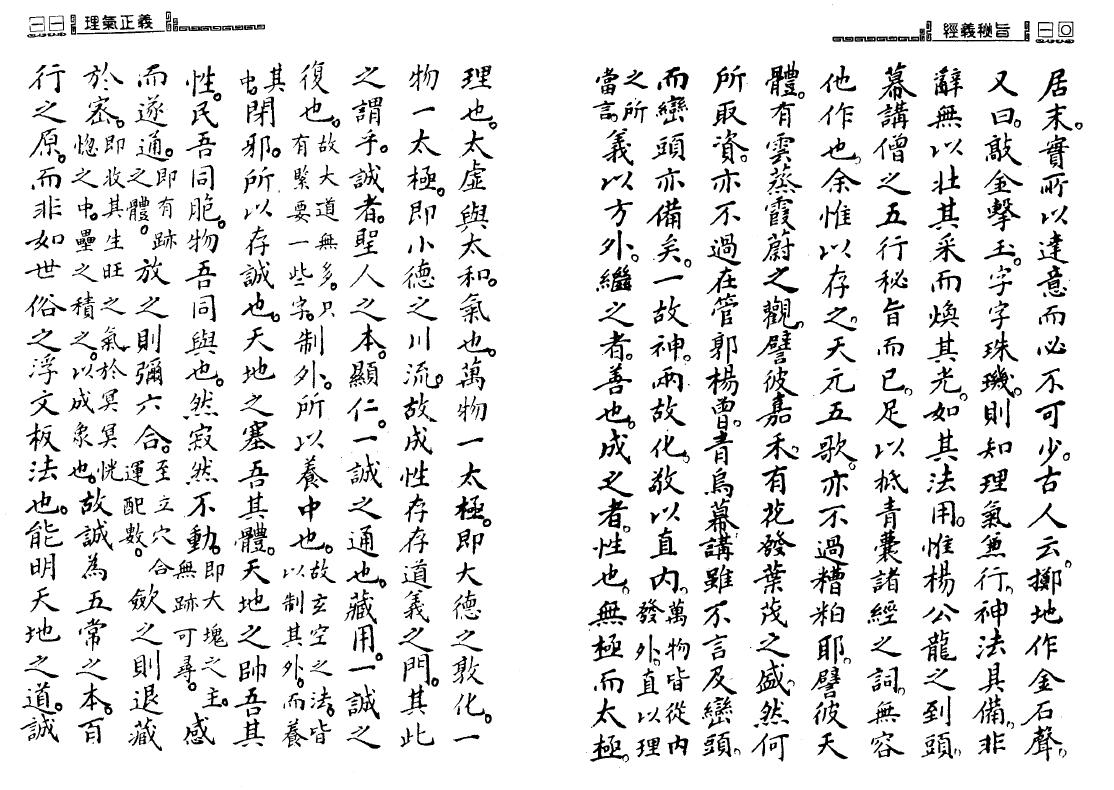 經義秘旨 一〇
居末。實所以達意而必不可少。古人云。擲地作金石聲。
又曰。敲金擊玉。字字珠璣。則知理氣兼行。神法具備。非
辭無以壯其采而煥其光。如其法用。惟楊公龍之到頭。
幕講僧之五行秘旨而已。足以柢青囊諸經之詞。無容
他作也。余惟以存之。天元五歌。亦不過糟粕耶。譬彼天
體。有雲蒸霞蔚之觀。譬彼嘉禾。有花發葉茂之盛。然何
所取資。亦不過在管郭楊曾。青烏幕講。雖不言及巒頭。
而巒頭亦備矣。一故神。兩故化。敬以直內。萬物皆從內發外。直以理
之所當言。義以方外。繼之者。善也。成之者。性也。無極而太極。
理氣正義 一一
理也。太虛與太和。氣也。萬物一太極。即大德之敦化。一
物一太極。即小德之川流。故成性存存道義之門。其此
之謂乎。誠者。聖人之本。顯仁。一誠之通也。藏用。一誠之
復也。故大道無多。只有緊要一些字。制外。所以養中也。故玄空之法。皆以制其外。而養
其中。閉邪。所以存誠也。天地之塞吾其體。天地之帥吾其
性。民吾同胞。物吾同與也。然寂然不動。即大塊之主。無跡可尋。感
而遂通。即有跡之體。放之則彌六合。至立穴合運配數。斂之則退藏
於密。即收其生旺之氣於冥冥恍惚之中。壘之積之。以成象也。故誠為五常之本。百
行之原。而非如世俗之浮文板法也。能明天地之道。誠